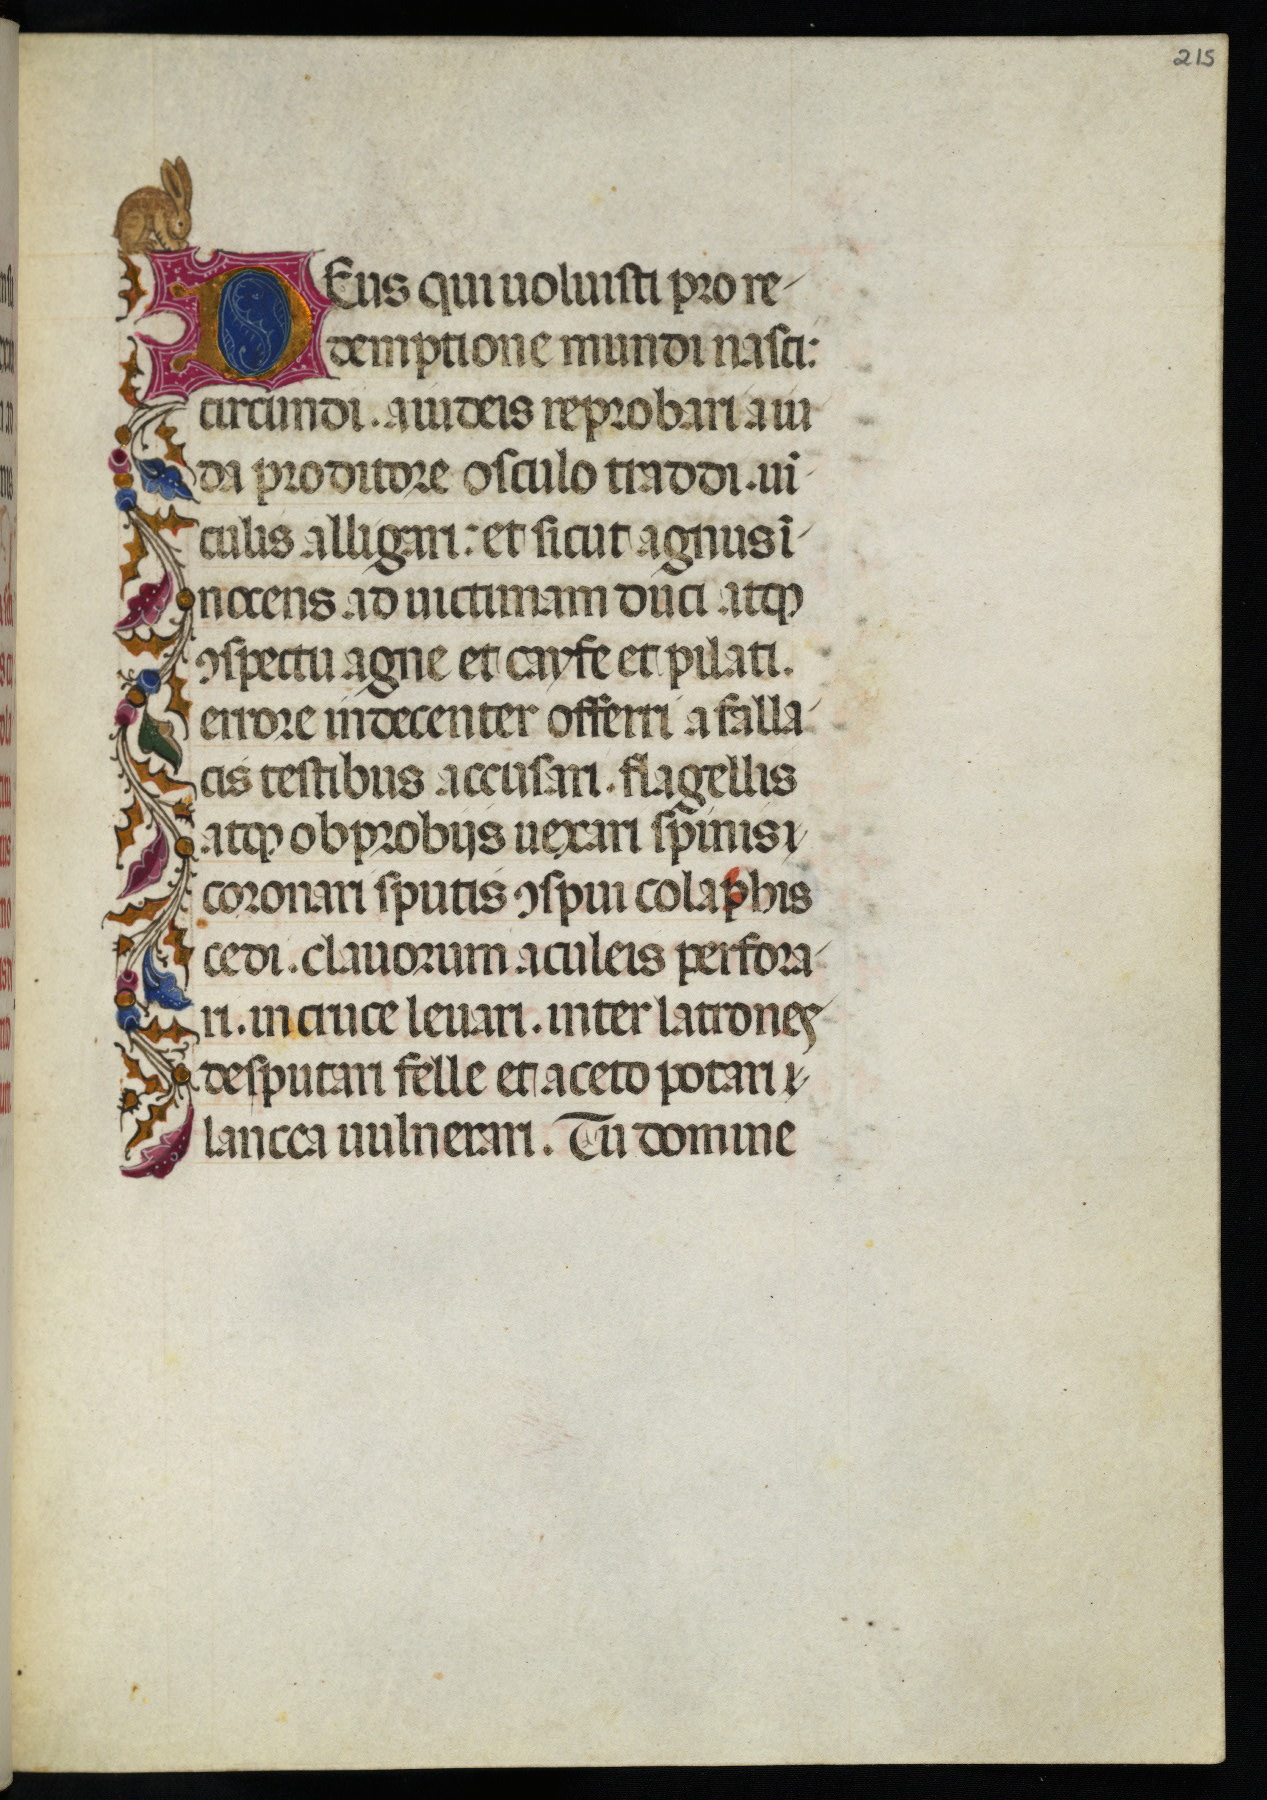 215
DEus qui uoluisti pro re-
demptione mundi nasci:
circundi. a iudeis reprobari a iu
da proditore osculo traddi. ui̅
culis alligari: et sicut agnus i̅
nocens ad uictimam duci atqꝫ
ꝯspectu agne et cayfe et pilati.
errore indecenter offerri a falla
cis testibus accusari. flagellis
atqꝫ obprobijs uexari spinis ⁊
coronari sputis ꝯspui colaphis
cedi. clauorum aculeis perfora-
ri. in cruce leuari. inter latrones
desputari felle et aceto potari ⁊
lancea uulnerari. Tu domine